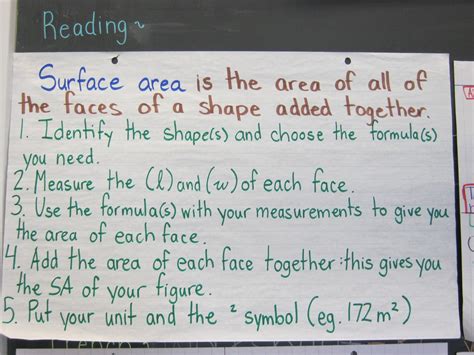 Reading~
Surface area is the area of all of
the faces of a shape added together.
1. Identify the shape(s) and choose the formula(s)
you need.
2. Measure the (l) and (w) of each face.
3. Use the formula(s) with your measurements to give you
the area of each face.
4. Add the area of each face together: this gives you
the SA of your figure.
5. Put your unit and the ² symbol (eg. 172 m²)